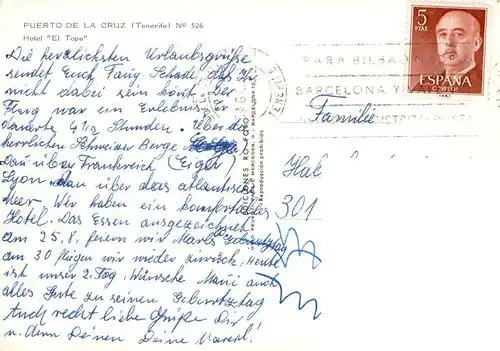 PUERTO DE LA CRUZ (Tenerife) Nº 526
Hotel "El Tope"
Die herzlichsten Urlaubsgrüße
sendet Euch Fany Schade, das Ihr
nicht dabei sein könt. Der
Flug war ein Erlebnis, er
dauerte 4 1/2 Stunden. Über die
herrlichen Schweizer Berge
Dan über Frankreich (Eiger)
Lyon dan über das atlantische
Meer. Wir haben ein komfortables
Hotel. Das Essen ausgezeichnet
am 25.8. feiern wir Geburtztag
am 30 fliegen wir wieder zurück. Heute
ist unser 2. Tag. Wünsche auch
alles Gute zu seinen Geburtztag
Auch recht liebe Grüße Dir
u. den Deinen Deine
5
PTAS
ESPAÑA
CORREOS
PARA BILBAO
BARCELONA Y
Familie
301
EDICIONES RO-FOTO
Reproducción prohibida